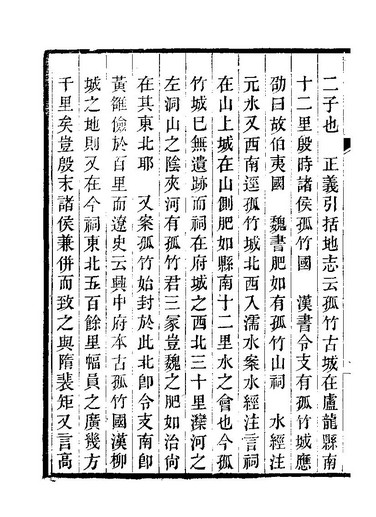 二子也　正義引括地志云孤竹古城在盧龍縣南
十二里殷時諸侯孤竹國　漢書令支有孤竹城應
劭曰故伯夷國　魏書肥如有孤竹山祠　水經注
元水又西南逕孤竹城北西入濡水案水經注言祠
在山上城在山側肥如縣南十二里水之會也今孤
竹城已無遺跡而祠在府城之西北三十里灤河之
左洞山之陰夾河有孤竹君三冢豈魏之肥如治尙
在其東北耶　又案孤竹始封於此北卽令支南卽
黃雒儉於百里而遼史云興中府本古孤竹國漢柳
城之地則又在今祠東北五百餘里幅員之廣幾方
千里矣豈殷末諸侯兼併而致之與隋裴矩又言高